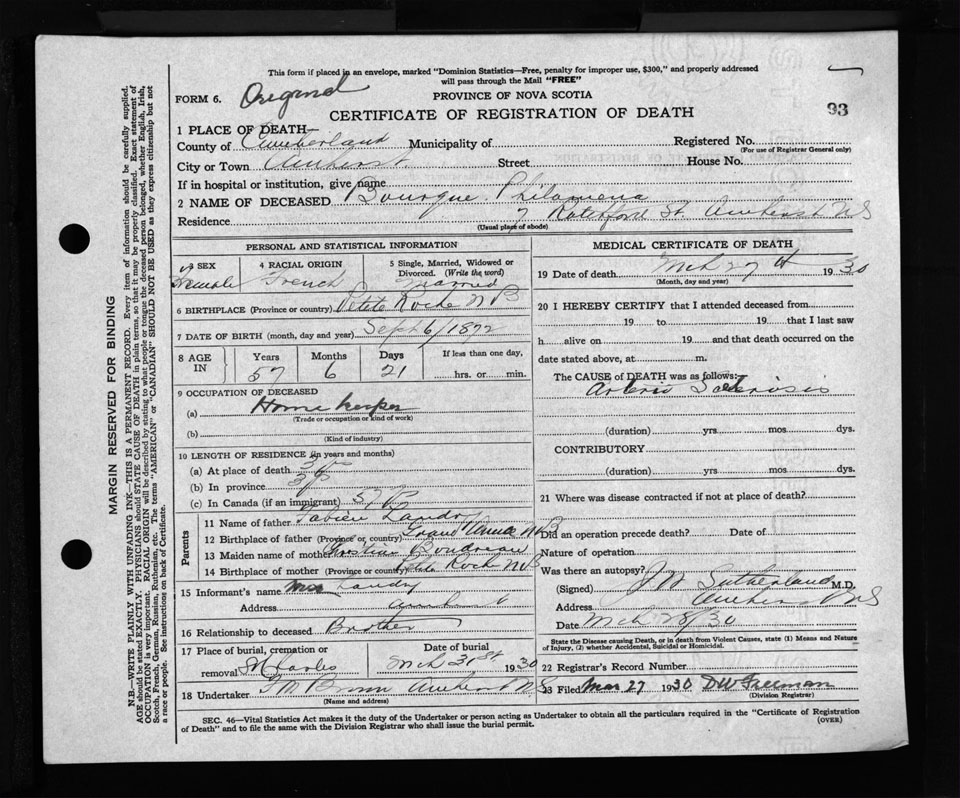 This form if placed in an envelope, marked "Dominion Statistics—Free, penalty for improper use, $300," and properly addressed
will pass through the Mail "FREE"
FORM 6. Original
PROVINCE OF NOVA SCOTIA
CERTIFICATE OF REGISTRATION OF DEATH
93
1 PLACE OF DEATH—
County of Cumberland Municipality of Registered No.
(For use of Registrar General only)
City or Town Amherst Street House No.
If in hospital or institution, give name
2 NAME OF DECEASED Bourque Philamena
Residence 7 St Amherst NS
(Usual place of abode)
PERSONAL AND STATISTICAL INFORMATION
3 SEX Female
4 RACIAL ORIGIN French
5 Single, Married, Widowed or Divorced. (Write the word) Married
6 BIRTHPLACE (Province or country) Petite Roche NB
7 DATE OF BIRTH (month, day and year) Sept 6/1872
8 AGE IN Years 57 Months 6 Days 21 If less than one day, hrs. or min.
9 OCCUPATION OF DECEASED
(a) Home keeper
(Trade or occupation or kind of work)
(b)
(Kind of industry)
10 LENGTH OF RESIDENCE (in years and months)
(a) At place of death 3 yrs
(b) In province 3 yrs
(c) In Canada (if an immigrant) 57 yrs
Parents
11 Name of father Fabien Landry
12 Birthplace of father (Province or country) Grand NB
13 Maiden name of mother Boudreau
14 Birthplace of mother (Province or country) Petite Roch NB
15 Informant's name Landry
Address Amherst
16 Relationship to deceased Brother
17 Place of burial, cremation or removal St Charles
Date of burial Mch 31st 1930
18 Undertaker Brown Amherst NS
(Name and address)
MEDICAL CERTIFICATE OF DEATH
19 Date of death Mch 27th 1930
(Month, day and year)
20 I HEREBY CERTIFY that I attended deceased from
19 to 19 that I last saw
h alive on 19 and that death occurred on the
date stated above, at m.
The CAUSE of DEATH was as follows:
Arterio Sclerosis
(duration) yrs mos dys.
CONTRIBUTORY
(duration) yrs mos dys.
21 Where was disease contracted if not at place of death?
Did an operation precede death? Date of
Nature of operation
Was there an autopsy?
(Signed) Sutherland M.D.
Address Amherst NS
Date Mch 28/30
State the Disease causing Death, or in death from Violent Causes, state (1) Means and Nature
of Injury, (2) whether Accidental, Suicidal or Homicidal.
22 Registrar's Record Number
23 Filed Mar 27 1930 DW Freeman
(Division Registrar)
SEC. 46—Vital Statistics Act makes it the duty of the Undertaker or person acting as Undertaker to obtain all the particulars required in the "Certificate of Registration
of Death" and to file the same with the Division Registrar who shall issue the burial permit.
(OVER)
MARGIN RESERVED FOR BINDING
N.B.—WRITE PLAINLY WITH UNFADING INK—THIS IS A PERMANENT RECORD. Every item of information should be carefully supplied.
AGE should be stated EXACTLY. PHYSICIANS should STATE CAUSE OF DEATH in plain terms, so that it may be properly classified. Exact statement of
OCCUPATION is very important. RACIAL ORIGIN will be described by stating to what people or tongue the deceased person belonged, whether English, Irish,
Scotch, French, German, Russian, Ruthenian, etc. The terms "AMERICAN" or "CANADIAN" SHOULD NOT BE USED as they express citizenship but not
a race or people. See instructions on back of Certificate.